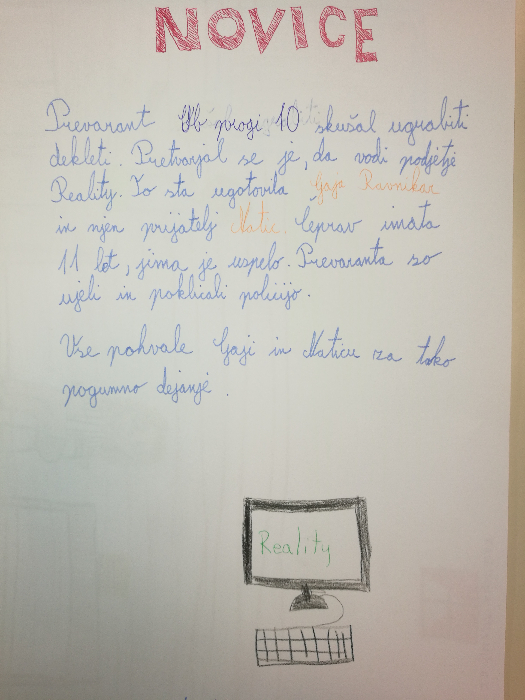 NOVICE
Prevarant Ob progi 10 skušal ugrabiti
dekleti. Pretvarjal se je, da vodi podjetje
Reality. To sta ugotovila Gaja Ravnikar
in njen prijatelj Matic. Čeprav imata
11 let, jima je uspelo. Prevaranta so
ujeli in poklicali policijo.
Vse pohvale Gaji in Maticu za tako
pogumno dejanje.
Reality